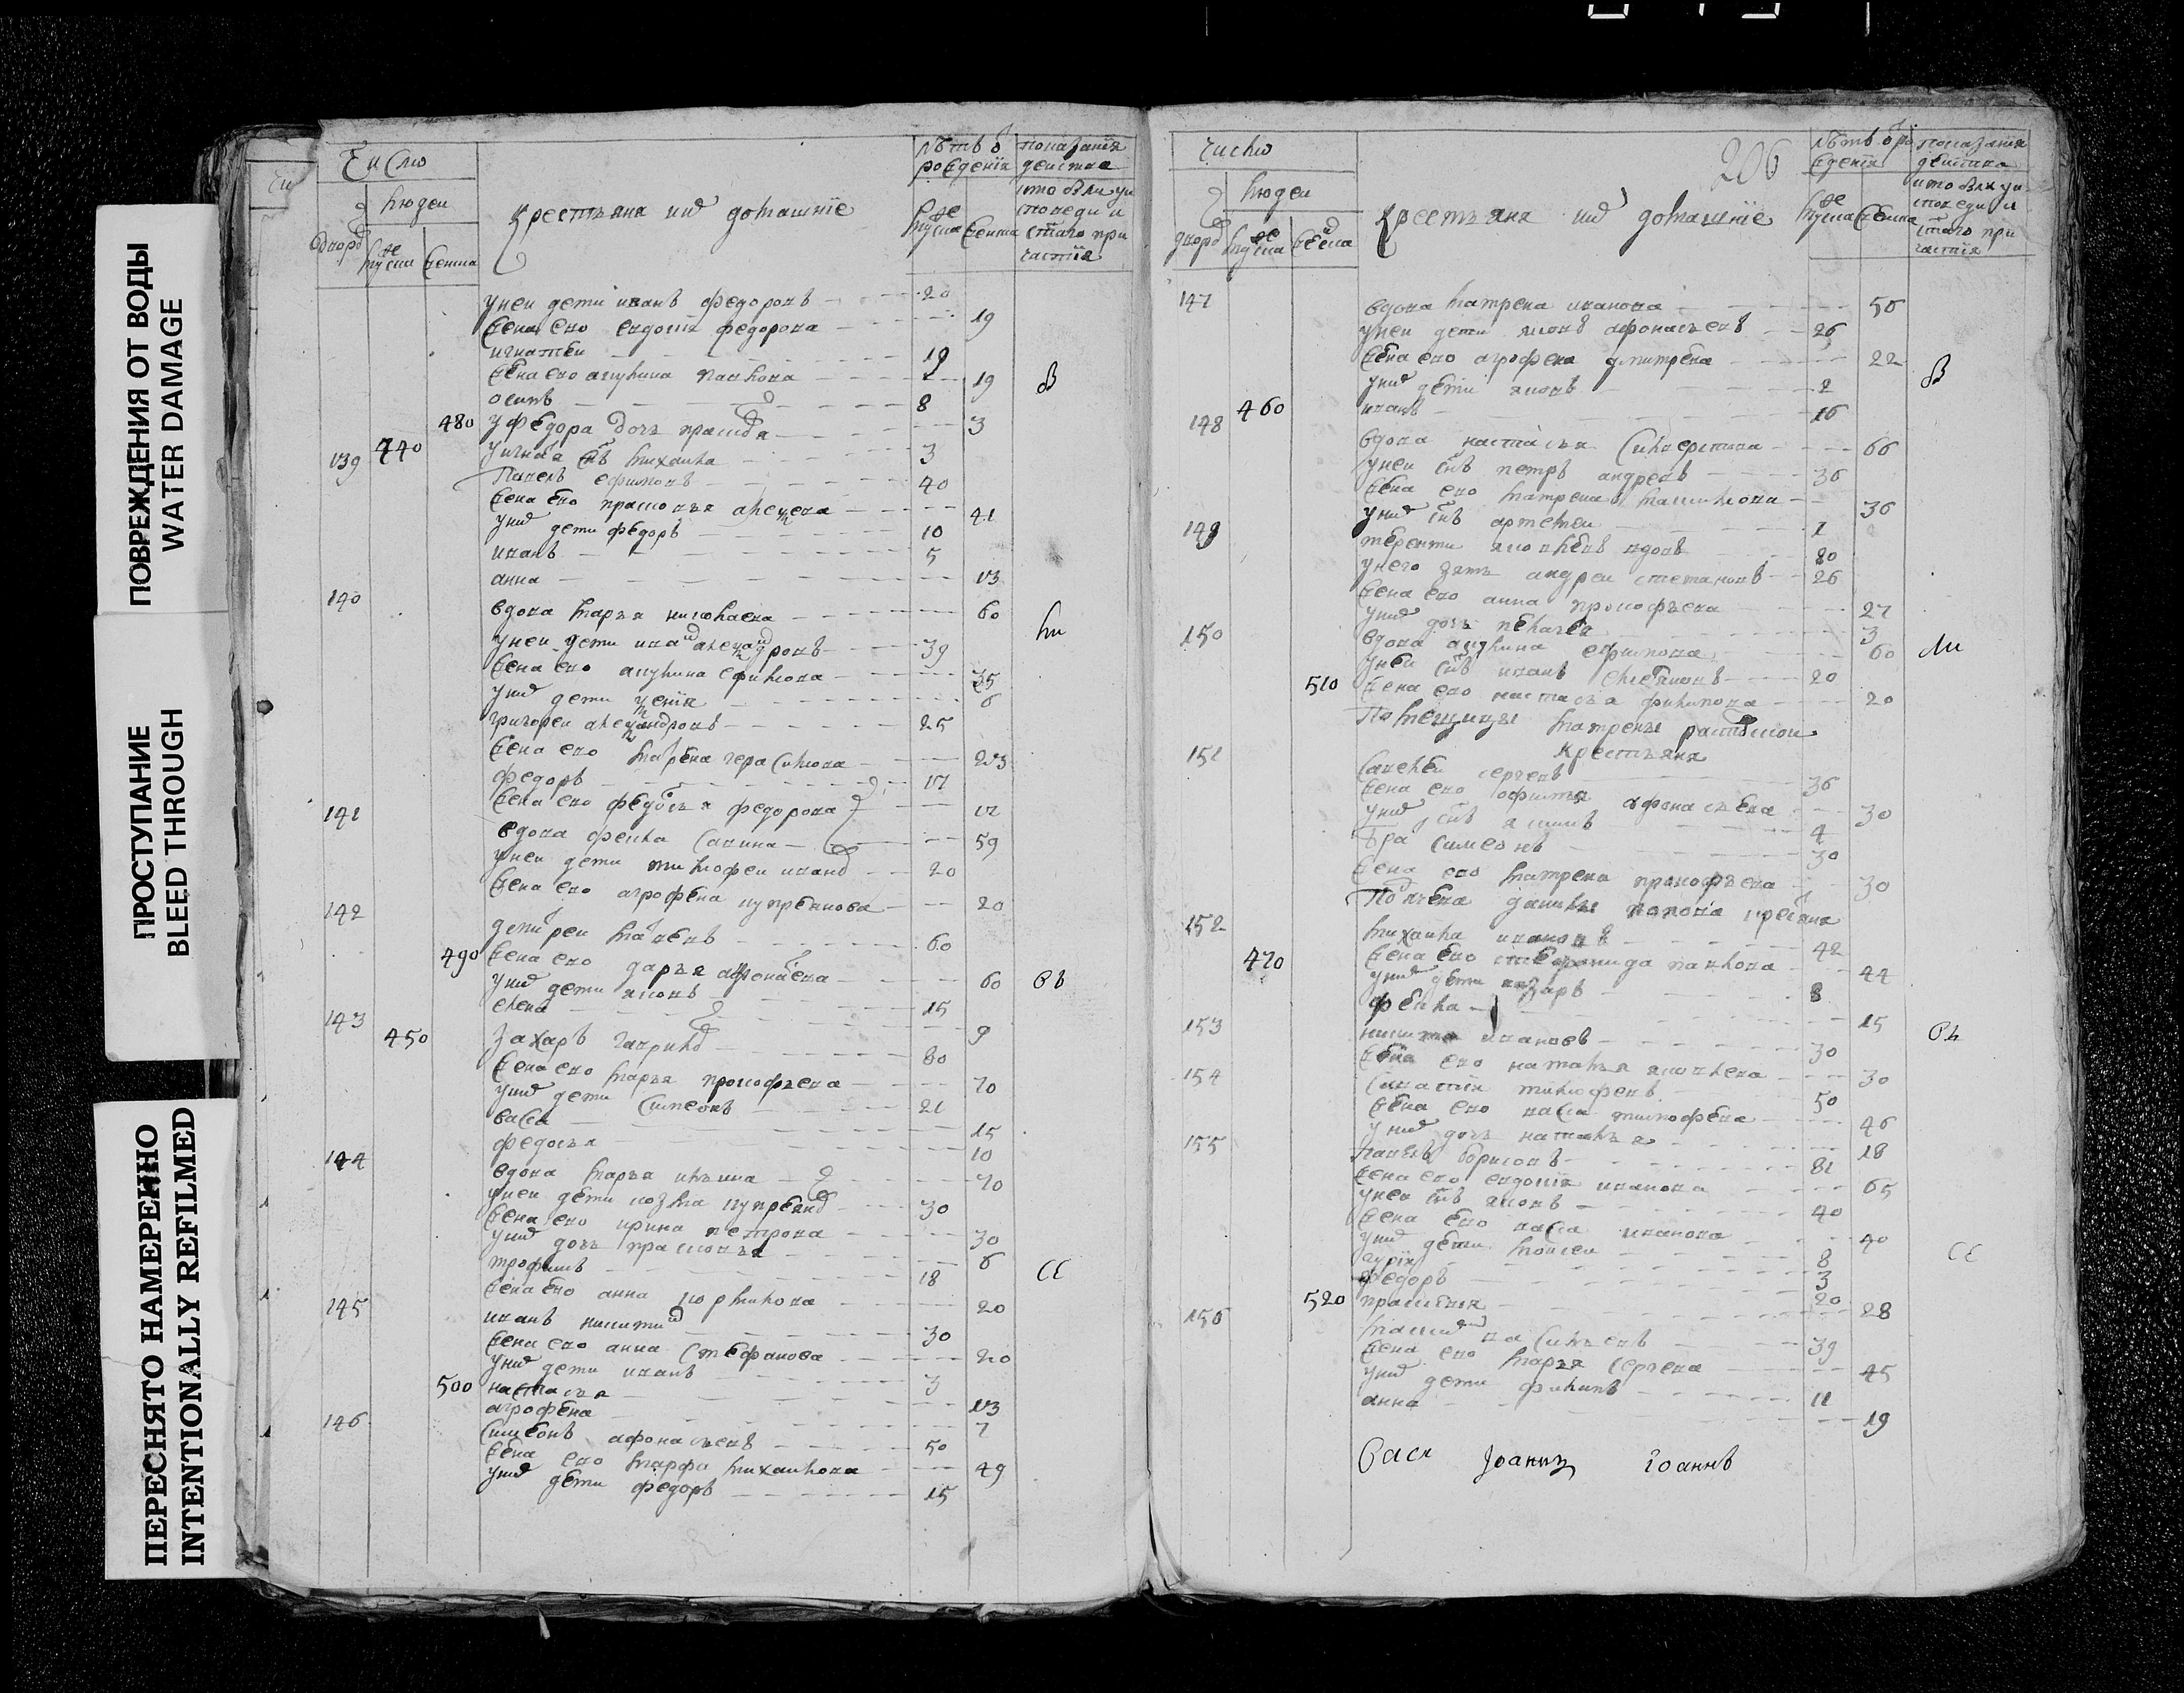 ПОВРЕЖДЕНИЯ ОТ ВОДЫ
WATER DAMAGE
ПРОСТУПАНИЕ
BLEED THROUGH
ПЕРЕСНЯТО НАМЕРЕННО
INTENTIONALLY REFILMED
Число
людеи
дворов
мужеска
женска
Крестьяня и их домашние
лѣтъ от рождения
мужеска
женска
показания
действа
кто были у исповеди и стаго причастия
у неи дети иванъ федоровъ 20
жена ево евдокия федорова 19
игнатеи 19
жена ево акулина павлова 19
осипъ 8
480 у федора дочь 3
у игната снъ михаила 3
139 440 Павелъ ефимовъ 40
жена ево прасковья алексеева 41
у них дети федоръ 10
иванъ 5
анна 13
140 вдова марья николаева 60
у неи дети иван александровъ 39
жена ево акулина ефимова 35
у них дети ксения 6
григореи александровъ 25
жена ево матрена герасимова 23
федоръ 17
жена ево федосья федорова 17
141 вдова фекла савина 59
у неи дети тимофеи иванов 20
жена ево агрофена куприянова 20
142 60
490 жена ево дарья афонасева 60
у них дети яковъ 15
елена 9
143 450 Захаръ гаврилов 80
жена ево марья прокофьева 70
у них дети симеонъ 21
васса 15
федосья 10
144 вдова марья ильина 70
у неи дети козма куприянов 30
жена ево ирина петрова 30
у них дочь прасковья 6
трофимъ 18
жена ево анна 20
145 иванъ никитин 30
жена ево анна стефанова 20
у них дети иванъ 3
500 настасья 13
агрофена 7
146 Симеонъ афонасьевъ 50
жена ево марфа михаилова 49
у них дети федоръ 15
206
Число
людеи
дворов
мужеска
женска
Крестьяня и их домашние
лѣтъ от рождения
мужеска
женска
показания
действа
кто были у исповеди и стаго причастия
147 вдова матрена иванова 50
у неи дети яковъ афонасьевъ 26
жена ево агрофена дмитрева 22
у них дети яковъ 2
460 иванъ 16
148 вдова настасья силверстова 66
у неи снъ петръ андреевъ 36
жена ево матрена максимова 36
у них снъ артемеи 1
149 терентеи яковлевъ вдовъ 80
у него зять андреи степановъ 26
жена ево анна прокофьева 27
у них дочь пелагея 3
150 вдова акулина ефимова 60
у неи снъ иванъ 20
510 жена ево настасья филипова 20
Помещицы матрены
крестьяня
151 Савелеи сергеевъ 36
жена ево софия афонасьева 30
у них снъ якимъ 4
брат симеонъ 30
жена ево матрена прокофьева 30
152 михаила ивановъ 42
470 жена ево степанида павлова 44
у них дети назаръ 8
фекла 15
153 никита ивановъ 30
жена ево наталья яковлева 30
154 Савватия тимофеевъ 50
жена ево васса тимофеева 46
у них дочь наталья 18
155 Павелъ борисовъ 81
жена ево евдокия иванова 65
у неи снъ яковъ 40
жена ево васса иванова 40
у них дети моисеи 8
гурии 3
федоръ 20
520 прасковья 28
156 максим васильевъ 39
жена ево марья сергеева 45
у них дети филипъ 11
анна 19
Васи Іоаннъ Іоаннъ